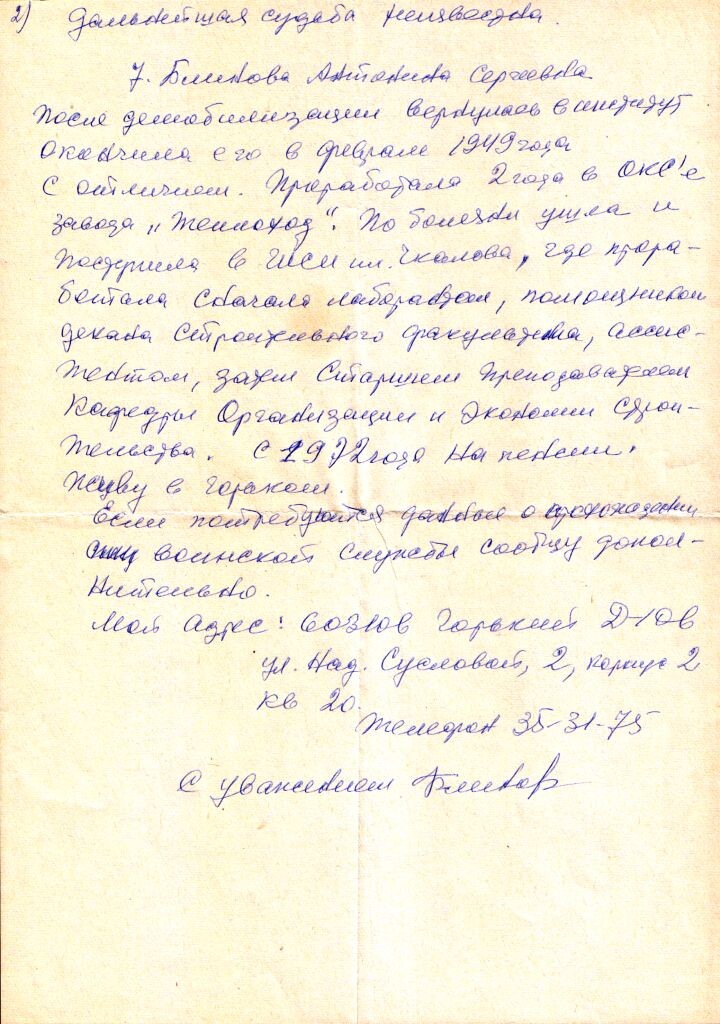 2) Дальнейшая судьба неизвестна.
7. Блинова Антонина Сергеевна
После демобилизации вернулась в институт
Окончила его в феврале 1949 года
с отличием. Проработала 2 года в ОКС'е
завода „Теплоход". По болезни ушла и
поступила в ГИСИ им. Чкалова, где прора-
ботала сначала лаборантом, помощником
декана Строительного факультета, ассис-
тентом, затем Старшим преподавателем
Кафедры Организации и Экономии строи-
тельства. С 1972 года на пенсии.
Живу в Горьком.
Если потребуются данные о прохождении
воинской службы сообщу допол-
нительно.
Мой Адрес: 603108 Горький Д-108
ул. Над. Сусловой, 2, корпус 2
кв 20.
Телефон 35-31-75
С уважением Блинов